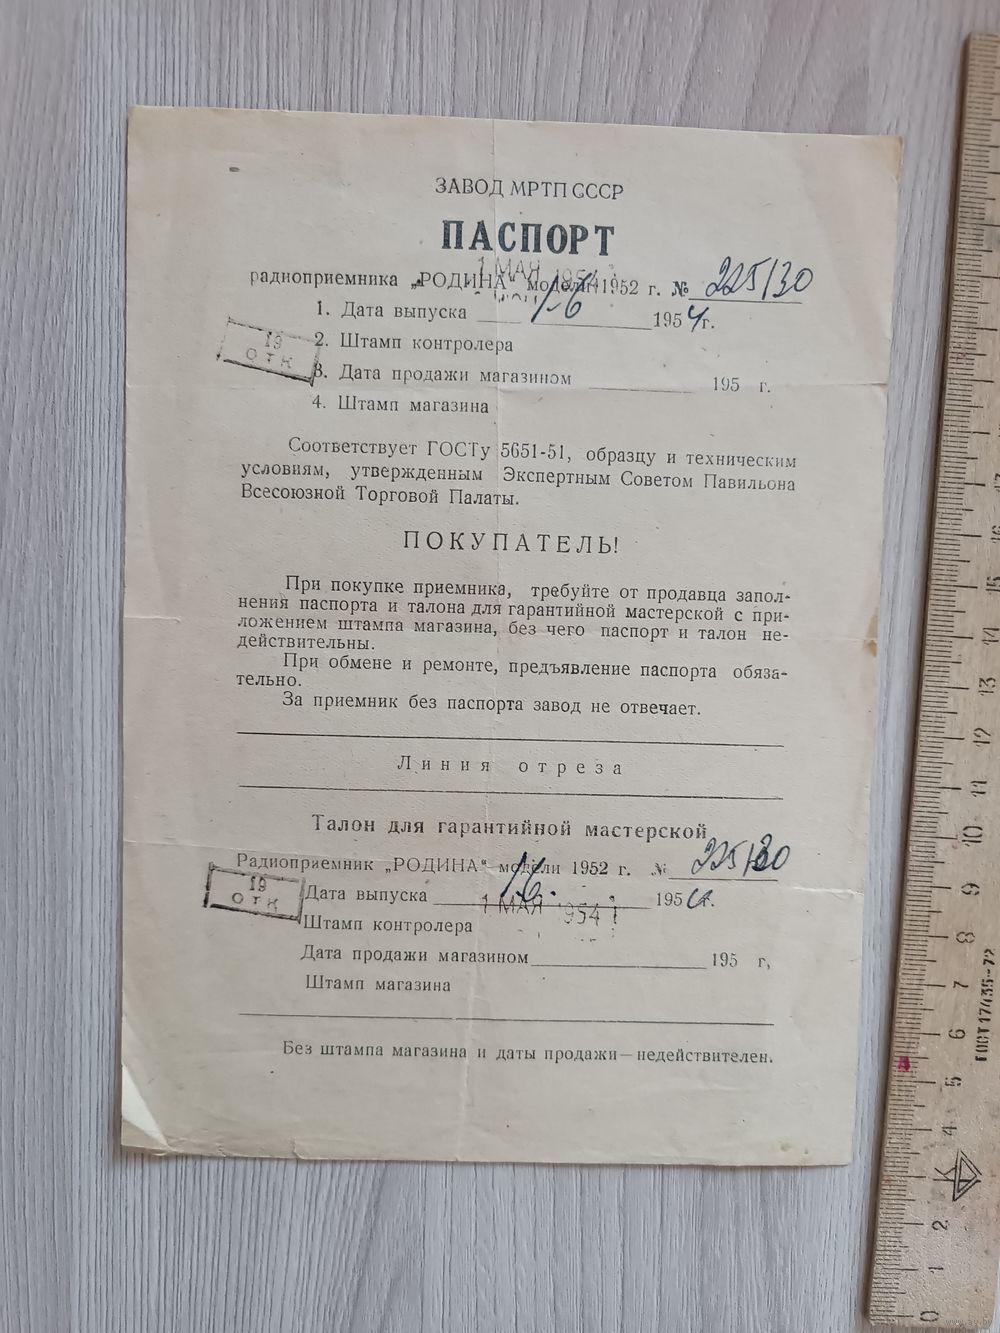 ЗАВОД МРТП СССР
ПАСПОРТ
1 МАЯ 1954
радиоприемника „РОДИНА“ модели 1952 г. № 225130
1. Дата выпуска 1954 г.
19
ОТК
2. Штамп контролера
3. Дата продажи магазином 195 г.
4. Штамп магазина
Соответствует ГОСТу 5651-51, образцу и техническим
условиям, утвержденным Экспертным Советом Павильона
Всесоюзной Торговой Палаты.
ПОКУПАТЕЛЬ!
При покупке приемника, требуйте от продавца запол-
нения паспорта и талона для гарантийной мастерской с при-
ложением штампа магазина, без чего паспорт и талон не-
действительны.
При обмене и ремонте, предъявление паспорта обяза-
тельно.
За приемник без паспорта завод не отвечает.
Линия отреза
Талон для гарантийной мастерской
Радиоприемник „РОДИНА“ модели 1952 г. № 225130
19
ОТК
Дата выпуска 1954 г.
1 МАЯ 1954
Штамп контролера
Дата продажи магазином 195 г,
Штамп магазина
Без штампа магазина и даты продажи—недействителен.
17
16
15
14
13
12
11
10
9
8
7
6
5
4
2
1
0
ГОСТ 17435-72